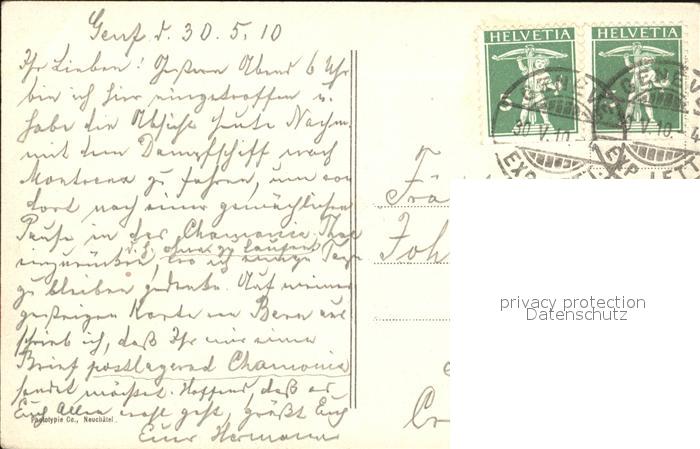 Genf d. 30.5.10
Ihr Lieben! Gestern Abend 6 Uhr
bin ich hier eingetroffen u.
habe die Absicht heute Nachm.
mit dem Dampfschiff nach
Montreux zu fahren, um von
dort nach einer gemächlichen
Pause in das Chamonix Thal
einzurücken,
d.h. ohne zu laufen
wo ich einige Tage
zu bleiben gedenke. Auf meiner
gestrigen Karte in Bern aus
schrieb ich, daß Ihr mir einen
Brief postlagernd Chamonix
sendet möchtet. Hoffend daß es
Euch Allen recht geht, grüßt Euch
Euer Hermann
Phototypie Co., Neuchâtel.
HELVETIA
HELVETIA
5
5
GENÈVE
30.V.10.
EXP. LETT
GENÈV
V.10.
EXP. LETT
Joh
privacy protection
Datenschutz